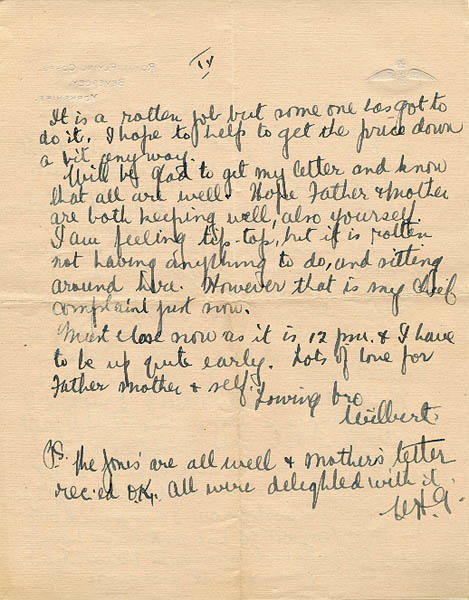 IV
ROYAL FLYING CORPS
BEVERLEY
YORKSHIRE
It is a rotten job but some one has got to
do it. I hope to help to get the price down
a bit any way.
Will be glad to get my letter and know
that all are well. Hope Father & Mother
are both keeping well, also yourself.
I am feeling tip-top, but it is rotten
not having anything to do, and sitting
around here. However that is my chief
complaint just now.
Must close now as it is 12 pm. & I have
to be up quite early. Lots of love for
Father mother & self.
Loving bro
Wilbert.
P.S. The Jones' are all well & Mother's letter
recied O.K. All were delighted with it.